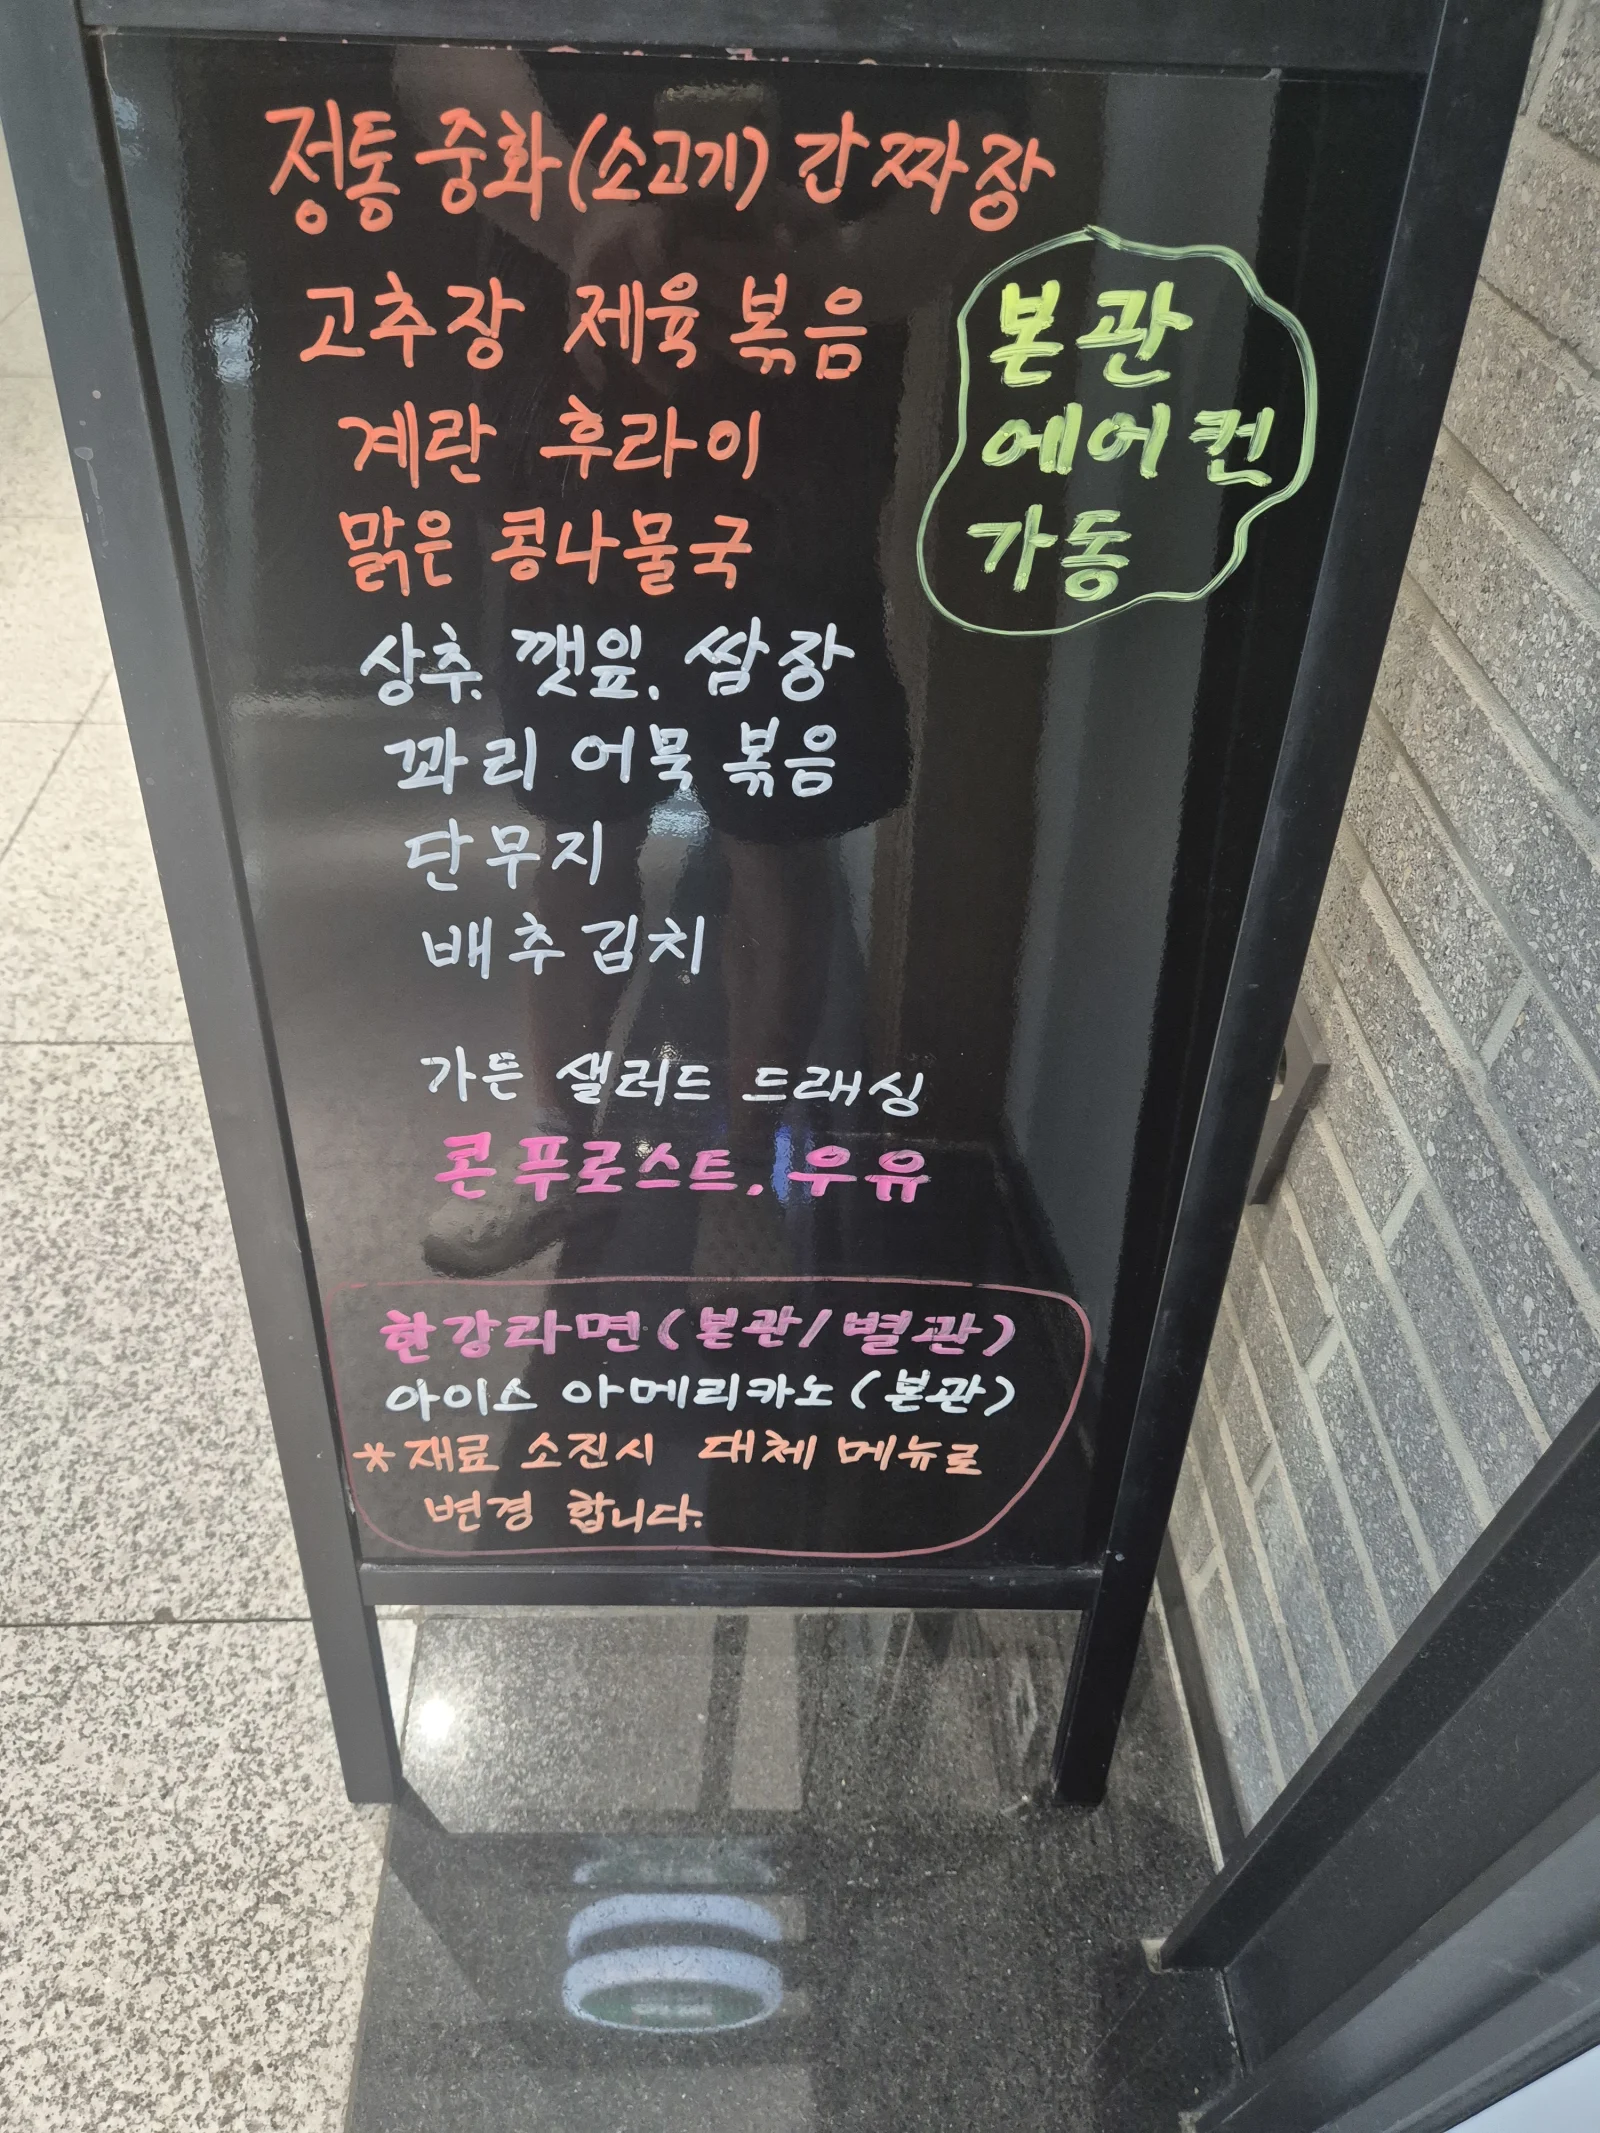 정통 중화(소고기) 간짜장
고추장 제육 볶음
계란 후라이
맑은 콩나물국
상추. 깻잎. 쌈장
꽈리 어묵 볶음
단무지
배추김치
본관
에어컨
가동
가든 샐러드 드래싱
콘푸로스트. 우유
한강라면(본관/별관)
아이스 아메리카노(본관)
*재료 소진시 대체 메뉴로
변경 합니다.